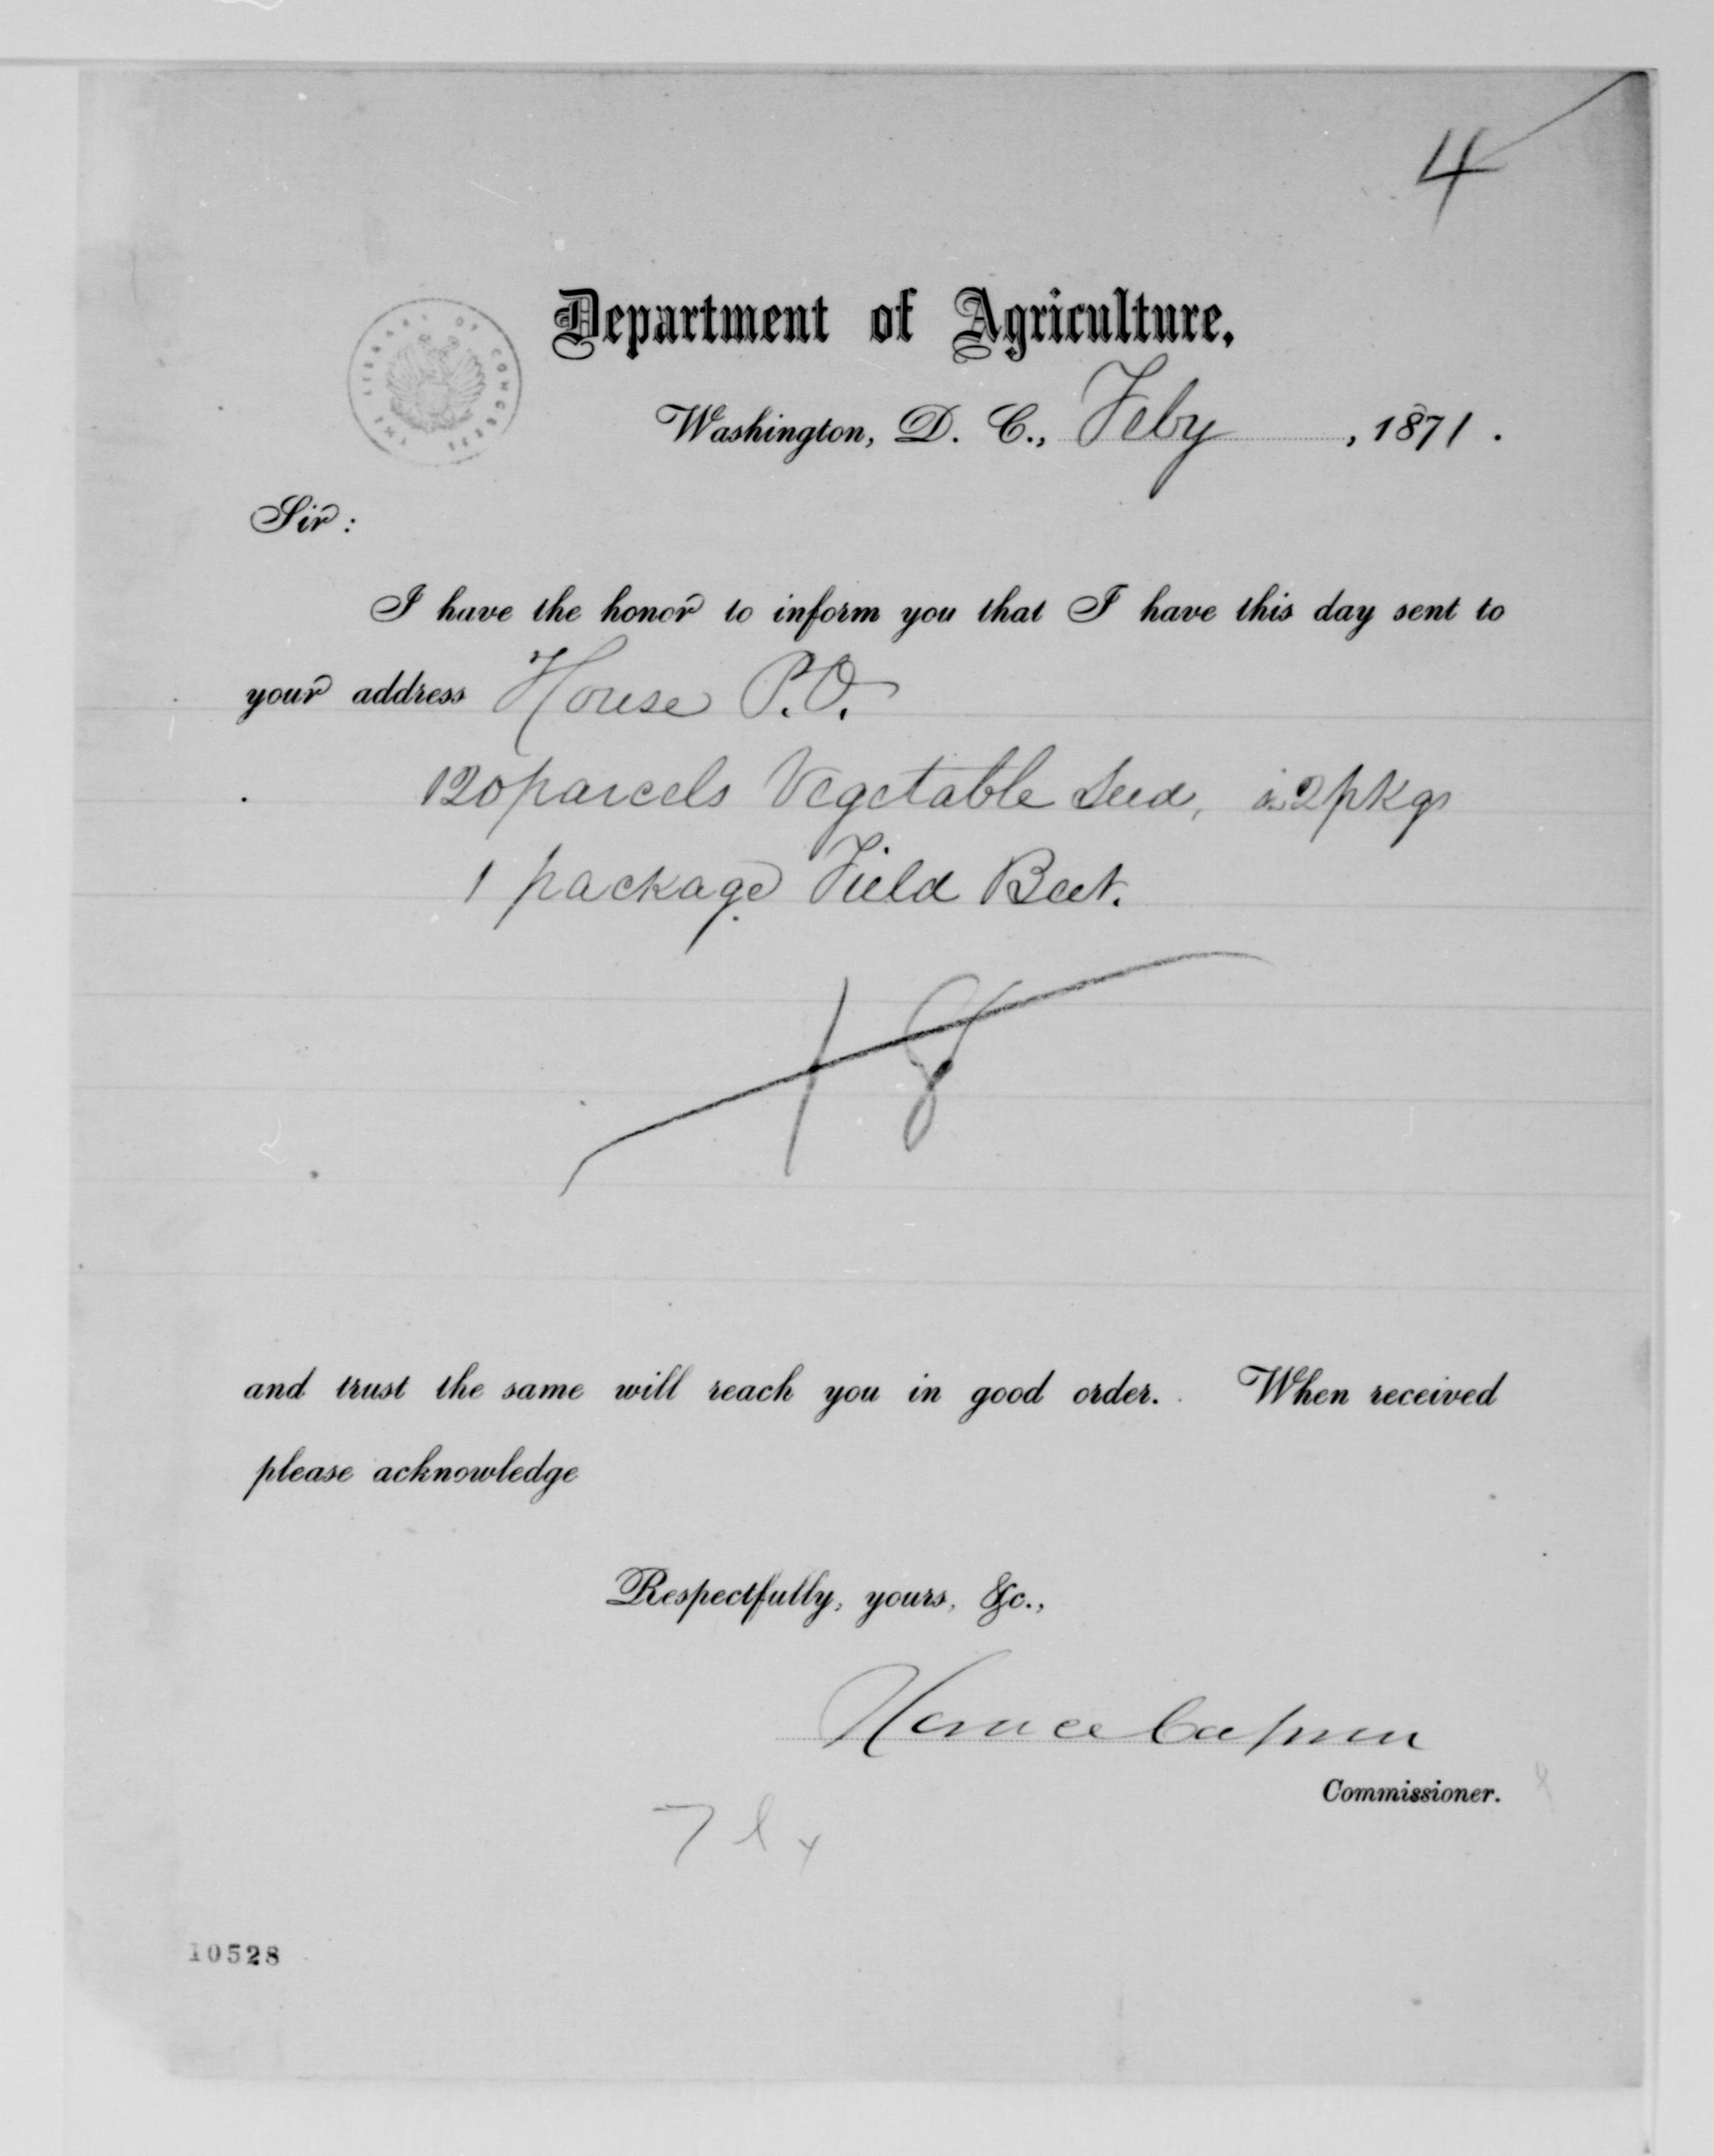 4
Department of Agriculture,
THE LIBRARY OF CONGRESS
Washington, D. C., Feby , 1871.
Sir:
I have the honor to inform you that I have this day sent to
your address House P.O.
120 parcels Vegetable Seed, in 2 pkgs
1 package Field Beet.
and trust the same will reach you in good order. When received
please acknowledge
Respectfully, yours, &c.,
Horace Capron
Commissioner.
10528